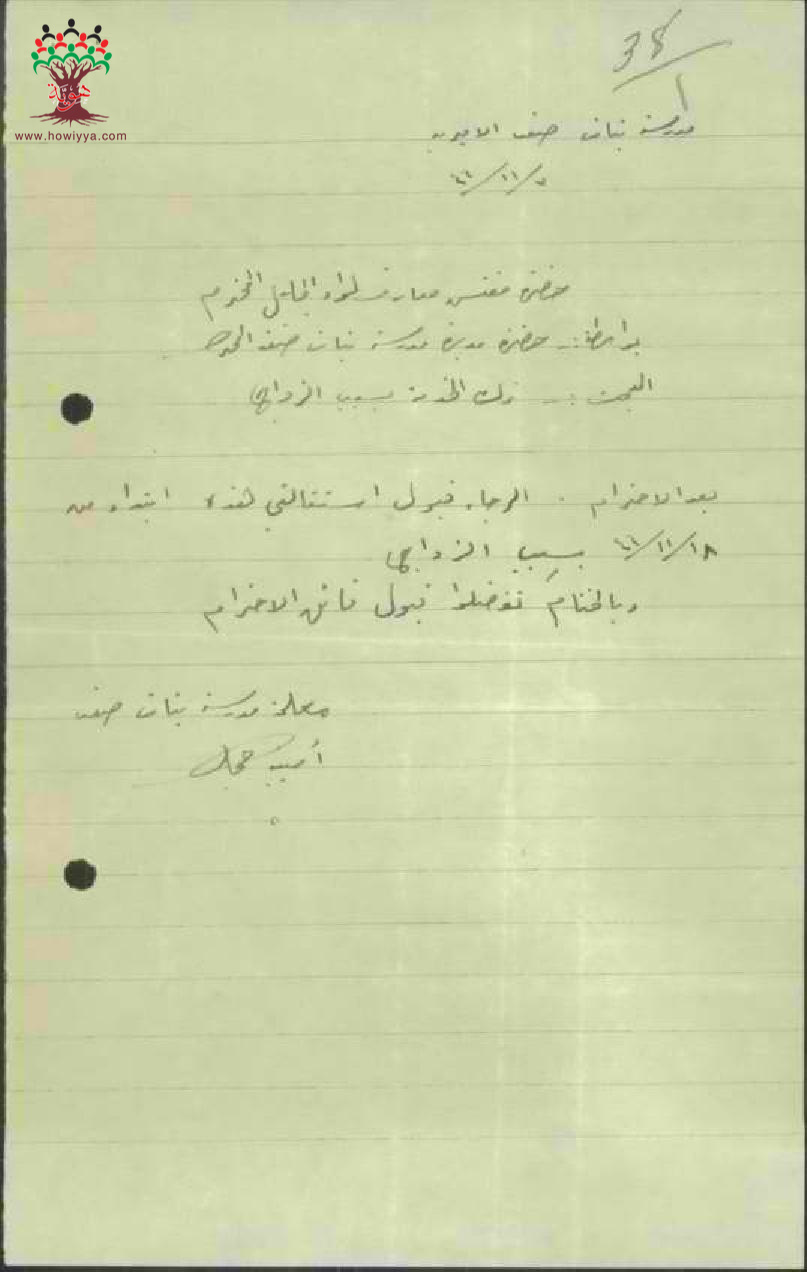 38
هوية
www.howiyya.com
مدرسة بنات صفد الاميرية
حضرة مفتش معارف لواء الجليل المحترم
بواسطة :- حضرة مديرة مدرسة بنات صفد المحترمة
البحث :- ترك الخدمة بسبب الزواج
بعد الاحترام . الرجاء قبول استقالتي هذه ابتداء من
١٨/١١/٤٦ بسبب الزواج
وبالختام تفضلوا قبول فائق الاحترام
معلمة مدرسة بنات صفد